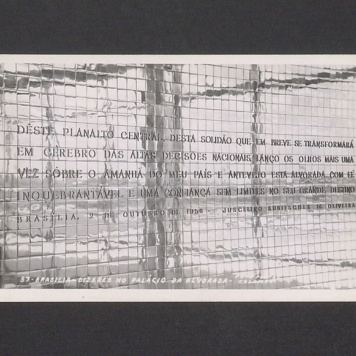 DÊSTE PLANALTO CENTRAL, DESTA SOLIDÃO QUE EM BREVE SE TRANSFORMARÁ
EM CÉREBRO DAS ALTAS DECISÕES NACIONAIS, LANÇO OS OLHOS MAIS UMA
VEZ SÔBRE O AMANHÃ DO MEU PAÍS E ANTEVEJO ESTA ALVORADA COM FÉ
INQUEBRANTÁVEL E UMA CONFIANÇA SEM LIMITES NO SEU GRANDE DESTINO
BRASÍLIA, 2 DE OUTUBRO DE 1956 JUSCELINO KUBITSCHEK DE OLIVEIRA
37-BRASILIA-DIZERES NO PALÁCIO DA ALVORADA-